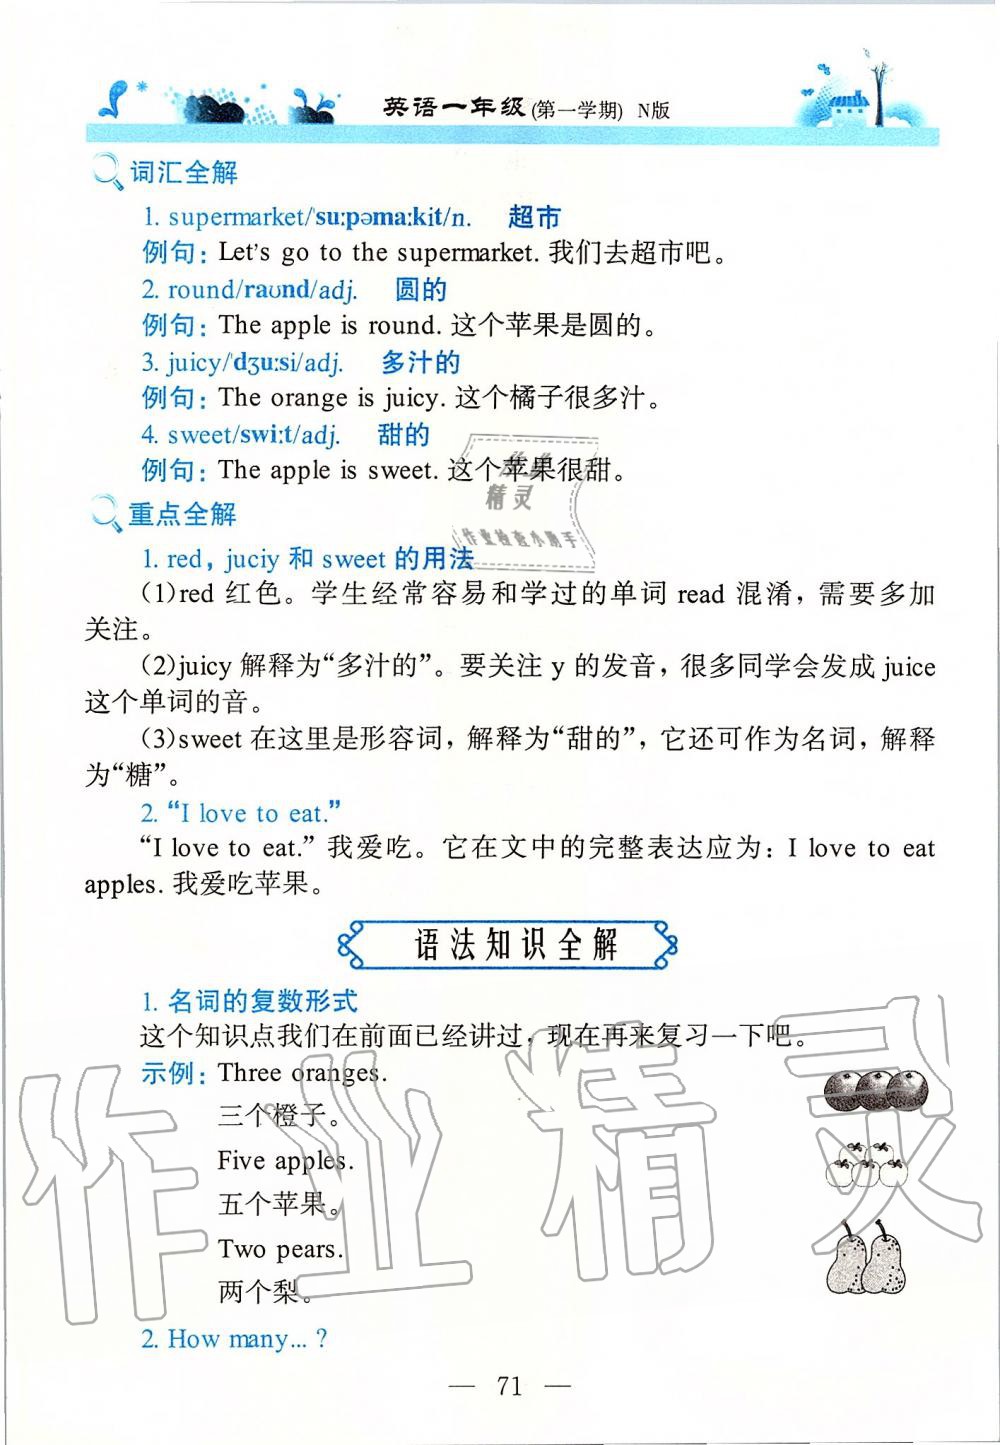 英语一年级(第一学期) N版
词汇全解
1. supermarket/ˈsuːpəmaːkit/n. 超市
例句：Let's go to the supermarket. 我们去超市吧。
2. round/raʊnd/adj. 圆的
例句：The apple is round. 这个苹果是圆的。
3. juicy/ˈdʒuːsi/adj. 多汁的
例句：The orange is juicy. 这个橘子很多汁。
4. sweet/swiːt/adj. 甜的
例句：The apple is sweet. 这个苹果很甜。
作业
精灵
作业检查小助手
重点全解
1. red，juciy 和 sweet 的用法
(1)red 红色。学生经常容易和学过的单词 read 混淆，需要多加
关注。
(2)juicy 解释为“多汁的”。要关注 y 的发音，很多同学会发成 juice
这个单词的音。
(3)sweet 在这里是形容词，解释为“甜的”，它还可作为名词，解释
为“糖”。
2. “I love to eat.”
“I love to eat.” 我爱吃。它在文中的完整表达应为：I love to eat
apples. 我爱吃苹果。
语法知识全解
1. 名词的复数形式
这个知识点我们在前面已经讲过，现在再来复习一下吧。
示例：Three oranges.
三个橙子。
Five apples.
五个苹果。
Two pears.
两个梨。
2. How many...？
作业精灵
— 71 —